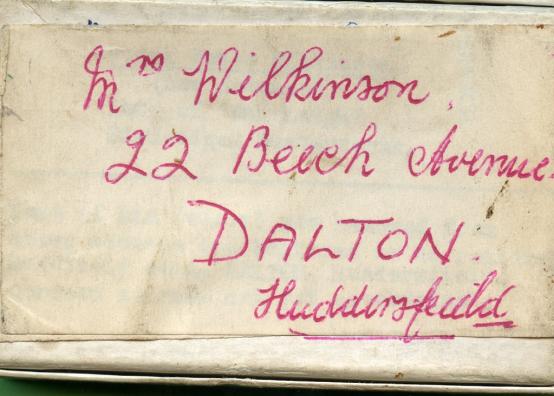 Mrs Wilkinson.
22 Beech Avenue.
DALTON.
Huddersfield